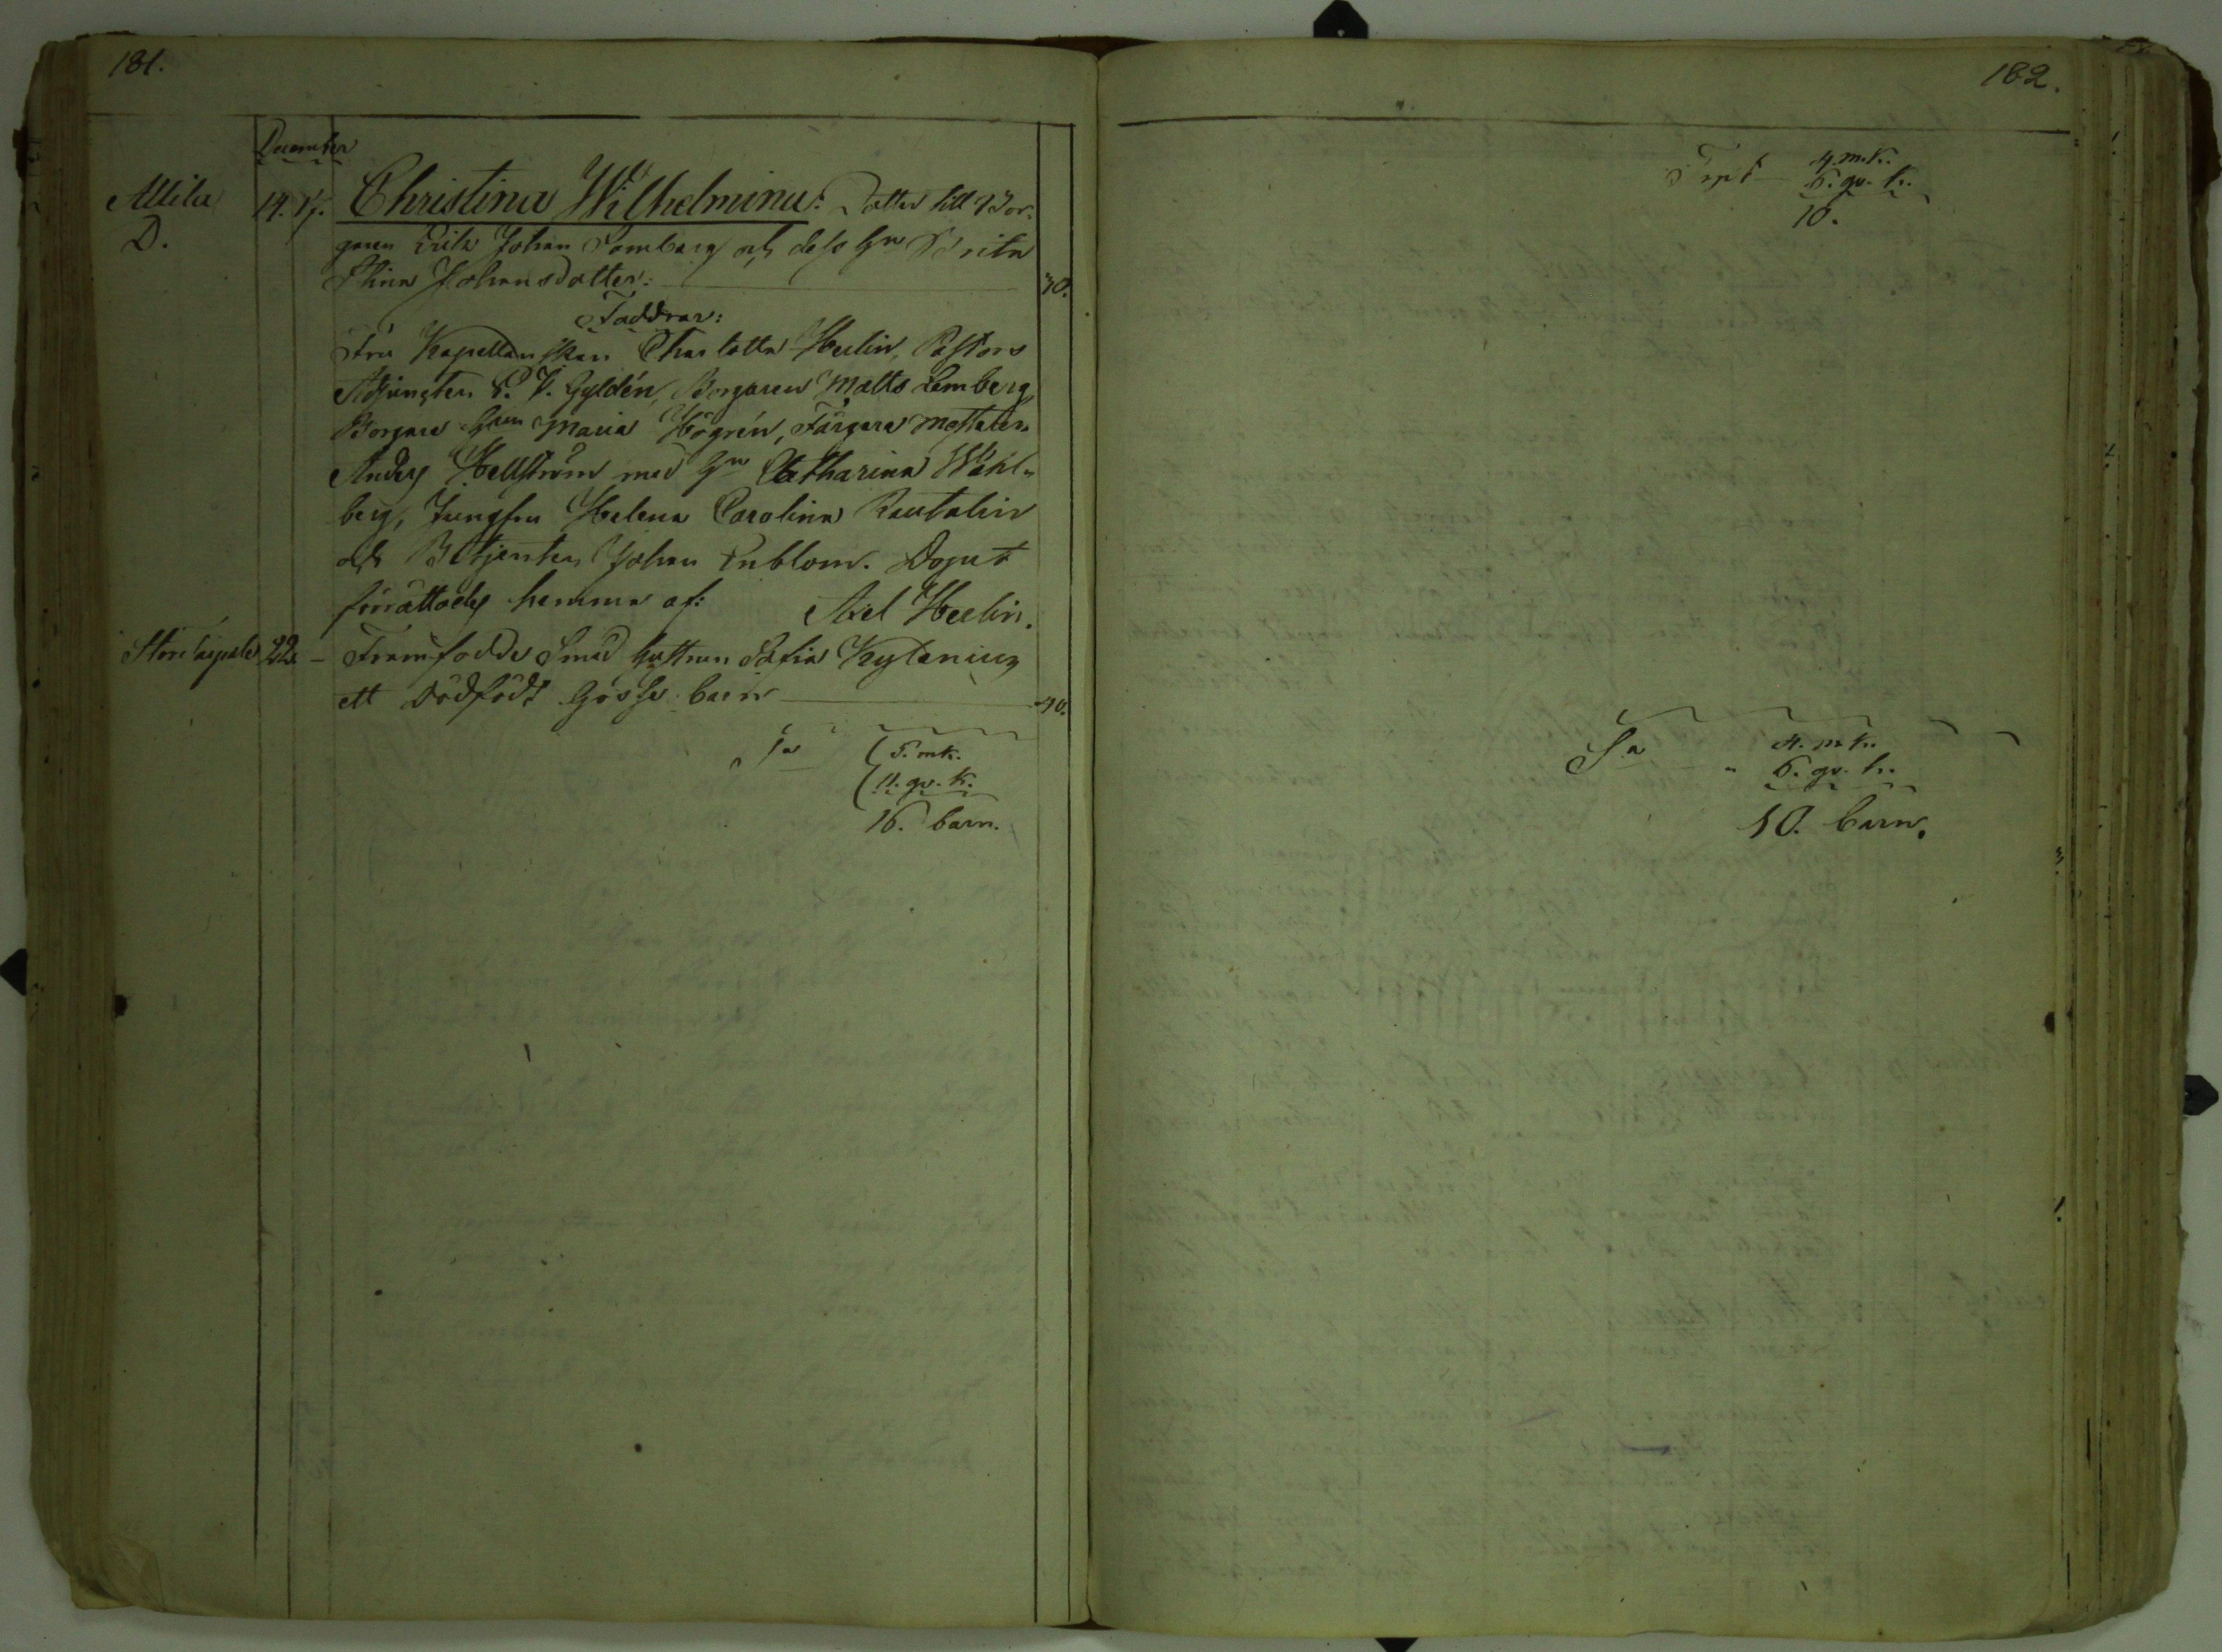 181.
December
Attila 14. 17. Christina Wilhelmina: Dotter till Bor-
D. garen Erik Johan Lemberg och dess Hu Brita
Stina Johansdotter: 30.
Faddrar:
Fru Kapellanskan Charlotta Heelin, Pastors
Adjungten C. V. Gyldén, Borgaren Matts Lemberg,
Borgare Hun Maria Högrén, Färgare Mästaren
Anders Hellström med Hu Catharina Wåhl-
berg, Jungfru Helena Carolina Rautalin
och Betjenten Johan Enblom. Doput
förrättades hemma af: Axel Heelin.
Storitaipale 22. – Framfödde Smed hustrun Sofia Kylenius
ett Dödfödt Gosse barn 40.
Sa 5. mk.
11. qv. k.
16. barn.
182.
Trpt 4. m. k.
6. qv. k.
10.
Sa 4. m. k.
6. qv. k.
10. barn.